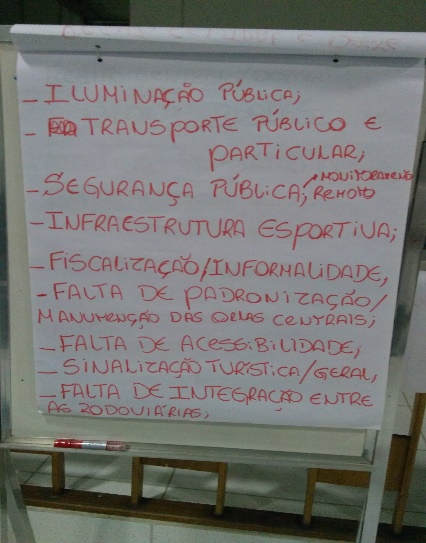 - ILUMINAÇÃO PÚBLICA;
- TRANSPORTE PÚBLICO E
PARTICULAR;
- SEGURANÇA PÚBLICA; MONITORAMENTO
REMOTO
- INFRAESTRUTURA ESPORTIVA;
- FISCALIZAÇÃO/INFORMALIDADE,
- FALTA DE PADRONIZAÇÃO/
MANUNENÇÃO DAS ORLAS CENTRAIS;
- FALTA DE ACESSIBILIDADE;
- SINALIZAÇÃO TURÍSTICA/GERAL,
- FALTA DE INTEGRAÇÃO ENTRE
AS RODOVIÁRIAS;